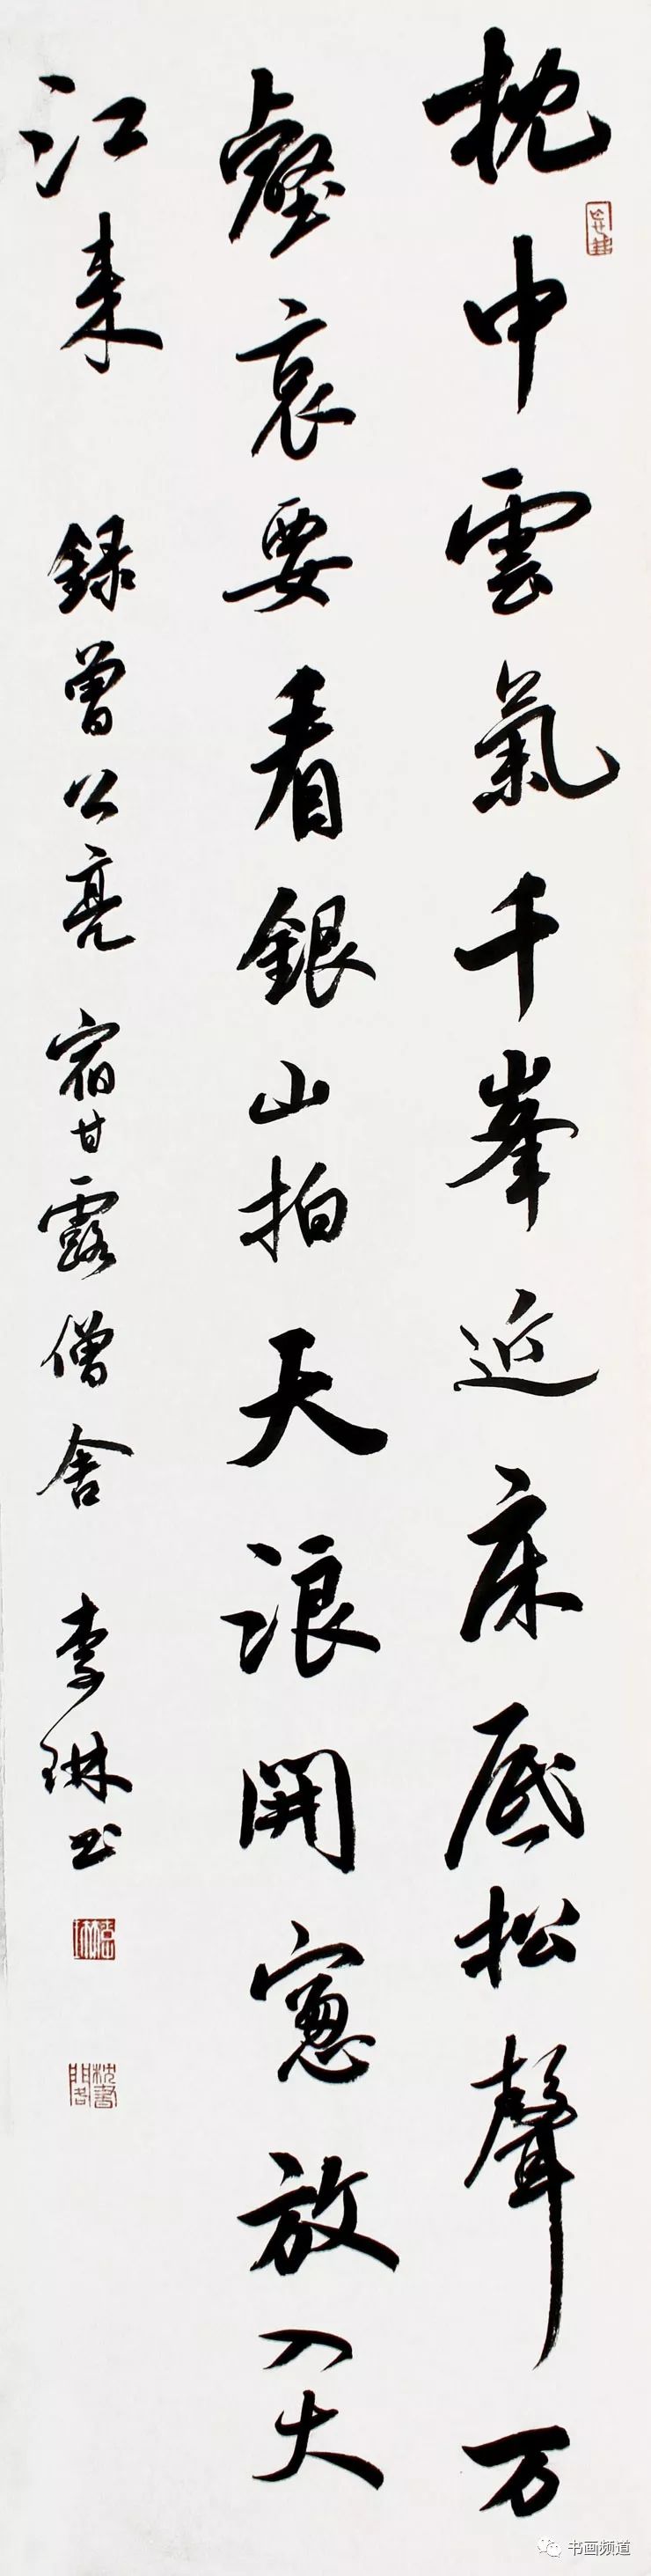 枕中雲氣千峯近床底松聲万
壑哀要看銀山拍天浪開窻放入大
江来
録曾公亮宿甘露僧舍 李琳书
李琳
枕书閣
书画频道